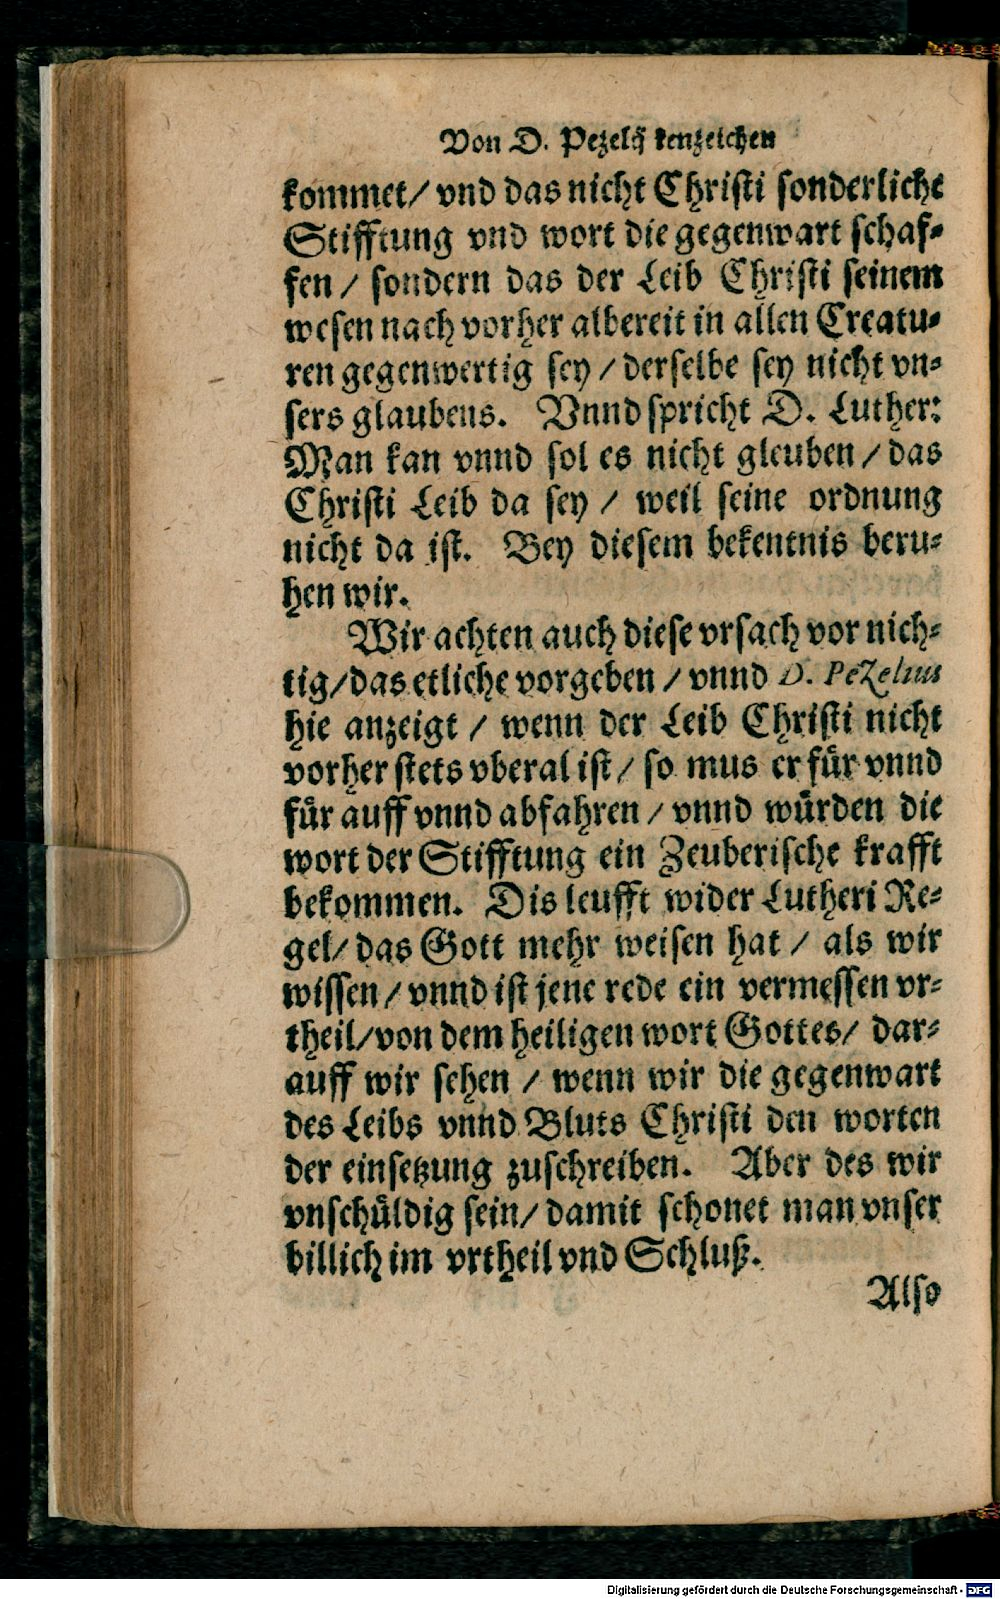 Von D. Pezelij kenzeichen
kommet/ vnd das nicht Christi sonderliche
Stifftung vnd wort die gegenwart schaf-
fen / sondern das der Leib Christi seinem
wesen nach vorher albereit in allen Creatu-
ren gegenwertig sey / derselbe sey nicht vn-
sers glaubens. Vnnd spricht D. Luther:
Man kan vnnd sol es nicht gleuben / das
Christi Leib da sey / weil seine ordnung
nicht da ist. Bey diesem bekentnis beru-
hen wir.
Wir achten auch diese vrsach vor nich-
tig/das etliche vorgeben / vnnd D. Pezelius
hie anzeigt / wenn der Leib Christi nicht
vorher stets vberal ist/ so mus er für vnnd
für auff vnnd abfahren / vnnd würden die
wort der Stifftung ein Zeuberische krafft
bekommen. Dis leufft wider Lutheri Re-
gel/ das Gott mehr weisen hat / als wir
wissen/ vnnd ist jene rede ein vermessen vr-
theil/von dem heiligen wort Gottes/ dar-
auff wir sehen / wenn wir die gegenwart
des Leibs vnnd Bluts Christi den worten
der einsetzung zuschreiben. Aber des wir
vnschüldig sein/ damit schonet man vnser
billich im vrtheil vnd Schluß.
Also
Digitalisierung gefördert durch die Deutsche Forschungsgemeinschaft - DFG